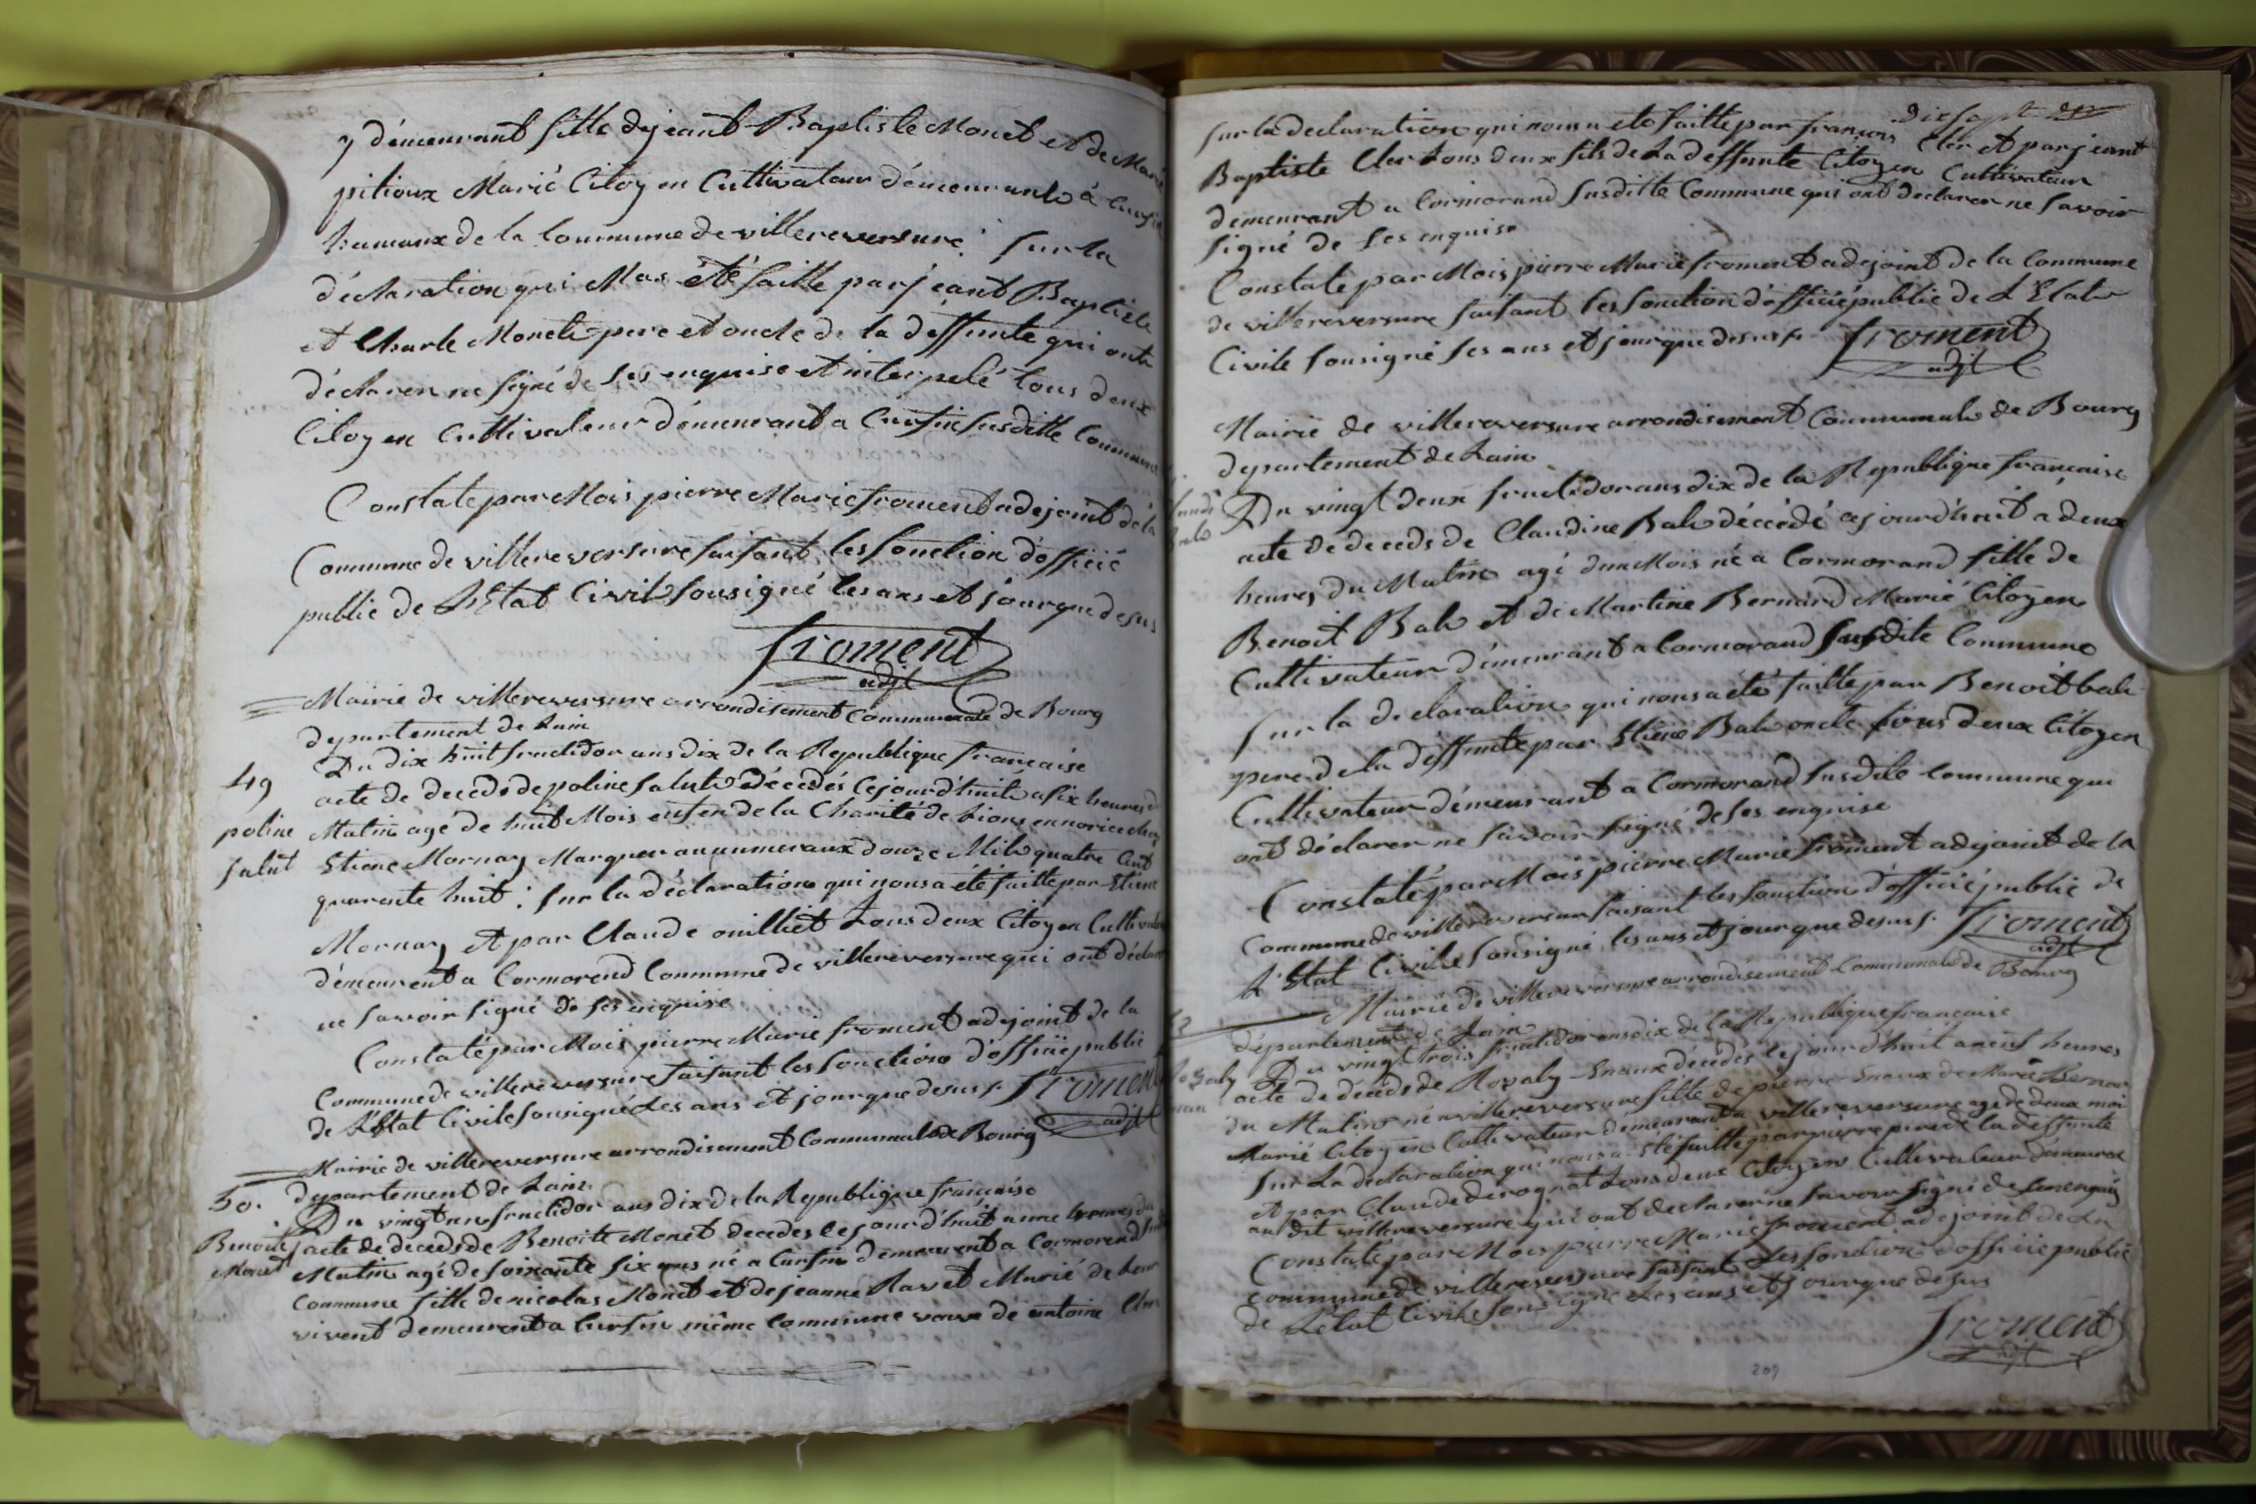 y démeurant fille dejeant Baptiste Monet et de Marie
pitioux Marié Citoyen Cultivateur démeurants à Cursin
hameaux de la Commune de villereversure : sur la
déclaration qui Mas été faitte par jeant Baptiste
et Charle Monets pere et oncle de la deffunte qui onts
déclarer ne signé de ses enquise et interpelé tous deux
Citoyen Cultivateur démeurant a Cursin susditte Commune
Constate par Mois pierre Marie froment adejoint dela
Commune de villereversure faisant les fonction d'officié
public de L'Etat Civil sousigné les ans et jour que desus
froment
adjt
Mairie de villereversure arrondisement Communale de Bourg
departement de Lain
Du dix huit fructidor ans dix de la Republique française
49
poline
salut
acte de deceds de poline saluts décedés cejourd'huit a six heures d
Matin agé de huit Mois enfen de la Charité de Lions en norice chez
Etiene Mornay Marquer au numeraux douze Mile quatre Cent
quarente huit : sur la déclaration qui nous a eté faitte par Etiene
Mornay et par Claude ouilliet tous deux Citoyen Cultivateur
démeurent a Cormorend Commune de villereversure qui ont déclarer
ne savoir signé de ses enquise
Constaté par Mois pierre Marie froment adejoint de la
Commune de villereversure faisant les fonction d'officié public
de L'Etat Civile sousigné Les ans et jour que desus froment
adjt
Mairie de villereversure arrondisement Communale de Bourg
departement de Lain
50.
Benoite
Monet
Du vingt un fructidor ans dix de la Republique française
acte de deceds de Benoite Monet decedés ce jour d'huit a une heures du
Matin agé de soixante six ans né a Cursin demeurent a Cormorend susdite
Commune fille de nicolas Monet et dejeanne Ravet Marié de leur
vivent demeurent a Cursin même Commune veuve de antoine Cler
dix sept
sur la declaration qui nous a ete faitte par françois Cler et par jeant
Baptiste Cler tous deux fils de La deffunte Citoyen Cultivateur
demeurant a Cormorand susditte Commune qui ont declarer ne savoir
signé de ses enquise
Constate par Mois pierre Marie froment adejoint de la Commune
de villereversure faisant les fonction d'officié public de L'Etats
Civile sousigné les ans et jour que desus froment
adjt
Mairie de villereversure arrondisement Communale de Bourg
departement de Lain
Du vingt deux fructidor ans dix de la Republique française
acte de deceds de Claudine Bals décédé cejourd'huit a deux
heures du Matin agé d'un Mois né a Cormorand fille de
Benoit Bals et de Martine Bernard Marié Citoyen
Cultivateur démeurant a Cormorand susdite Commune
sur la declaration qui nous a été faitte par Benoit bals
pere de la deffunte par Etiene Bals oncle tous deux Citoyen
Cultivateur démeurant a Cormorand susdite Commune qui
ont déclarer ne savoir signé de ses enquise
Constaté par Mois pierre Marie froment adejoint de la
Commune de villereversure faisant les fonction d'officié public de
L'Etat Civile sousigné les ans et jour que desus froment
adjt
Mairie de villereversure arrondisement Communale de Bourg
département de Lain
Du vingt trois fructidor ans dix de la Republique française
acte de décéds de Rosaly decedés cejourd'huit a neuf heures
du Matin né a villereversure fille de pierre de Marie Bernar
Marié Citoyen Cultivateur demeurant a villereversure agé de deux moi
sur La declaration qui nous a été faitte par pierre pere de la deffunte
et par Claude tous deux Citoyen Cultivateur démeurant
au dit villereversure qui ont declarer ne savoir signé de enquis
Constate par Mois pierre Marie froment adejoint de La
commune de villereversure faisant Les fonction d'officié public
de Létat Civile sousigné Les ans et jour que desus
froment
adjt
209